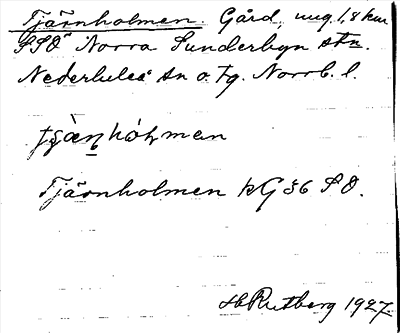 Tjärnholmen. Gård, ung. 1,8 km
SSO Norra Sunderbyn stn.
Nederluleå sn o. tg. Norrb. l.
Tjärnholmen kG 36 SO.
H Rutberg 1927.